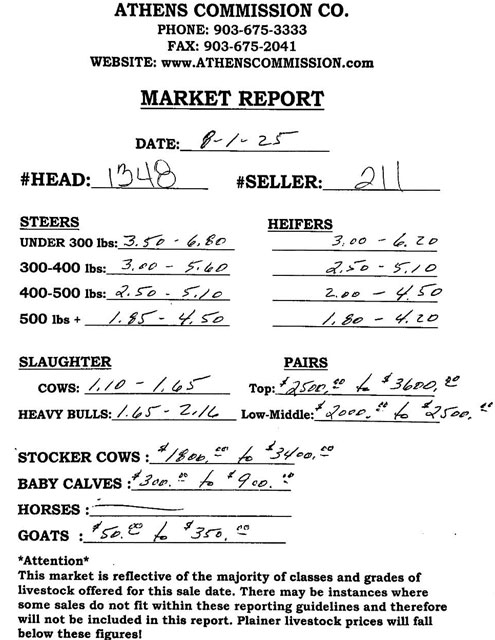 ATHENS COMMISSION CO.
PHONE: 903-675-3333
FAX: 903-675-2041
WEBSITE: www.ATHENSCOMMISSION.com
MARKET REPORT
DATE: 8-1-25
#HEAD: 1348 #SELLER: 211
STEERS HEIFERS
UNDER 300 lbs: 3.50 - 6.80 3.00 - 6.20
300-400 lbs: 3.00 - 5.60 2.50 - 5.10
400-500 lbs: 2.50 - 5.10 2.00 - 4.50
500 lbs + 1.85 - 4.50 1.80 - 4.20
SLAUGHTER PAIRS
COWS: 1.10 - 1.65 Top: $2500.00 to $3600.00
HEAVY BULLS: 1.65 - 2.16 Low-Middle: $2000.00 to $2500.00
STOCKER COWS : $1800.00 to $3400.00
BABY CALVES : $300.00 to $900.00
HORSES :
GOATS : $50.00 to $350.00
*Attention*
This market is reflective of the majority of classes and grades of
livestock offered for this sale date. There may be instances where
some sales do not fit within these reporting guidelines and therefore
will not be included in this report. Plainer livestock prices will fall
below these figures!